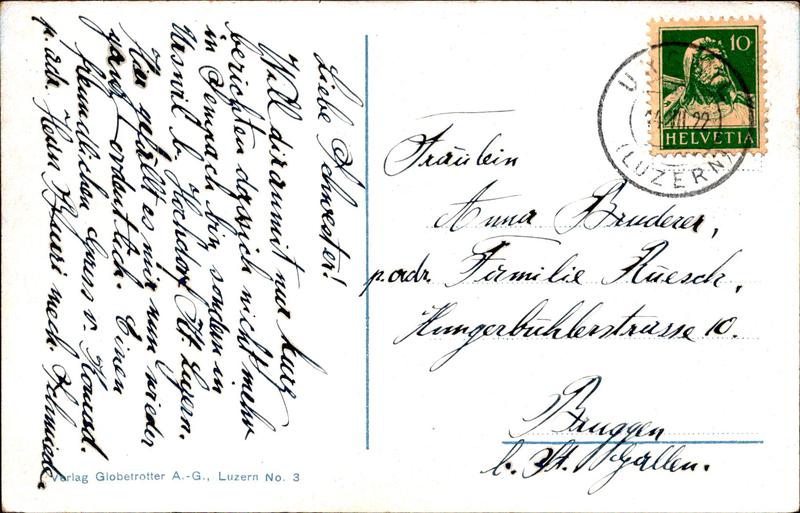 Liebe Schwester!
Will dir damit nur kurz
berichten dass ich nicht mehr
in Sempach bin sondern in
Urswil b. Hochdorf Kt. Luzern.
Hier gefällt es mir nun wieder
ganz ordentlich. Einen
freundlichen Gruss v. Konrad.
p. adr. Herrn mech. Schmiede.
Verlag Globetrotter A.-G., Luzern No. 3
10
HELVETIA
(LUZERN)
Fräulein
Anna Bruderer,
p. adr. Familie Ruesch,
Hungerbühlerstrasse 10.
Bruggen
b. St. Gallen.